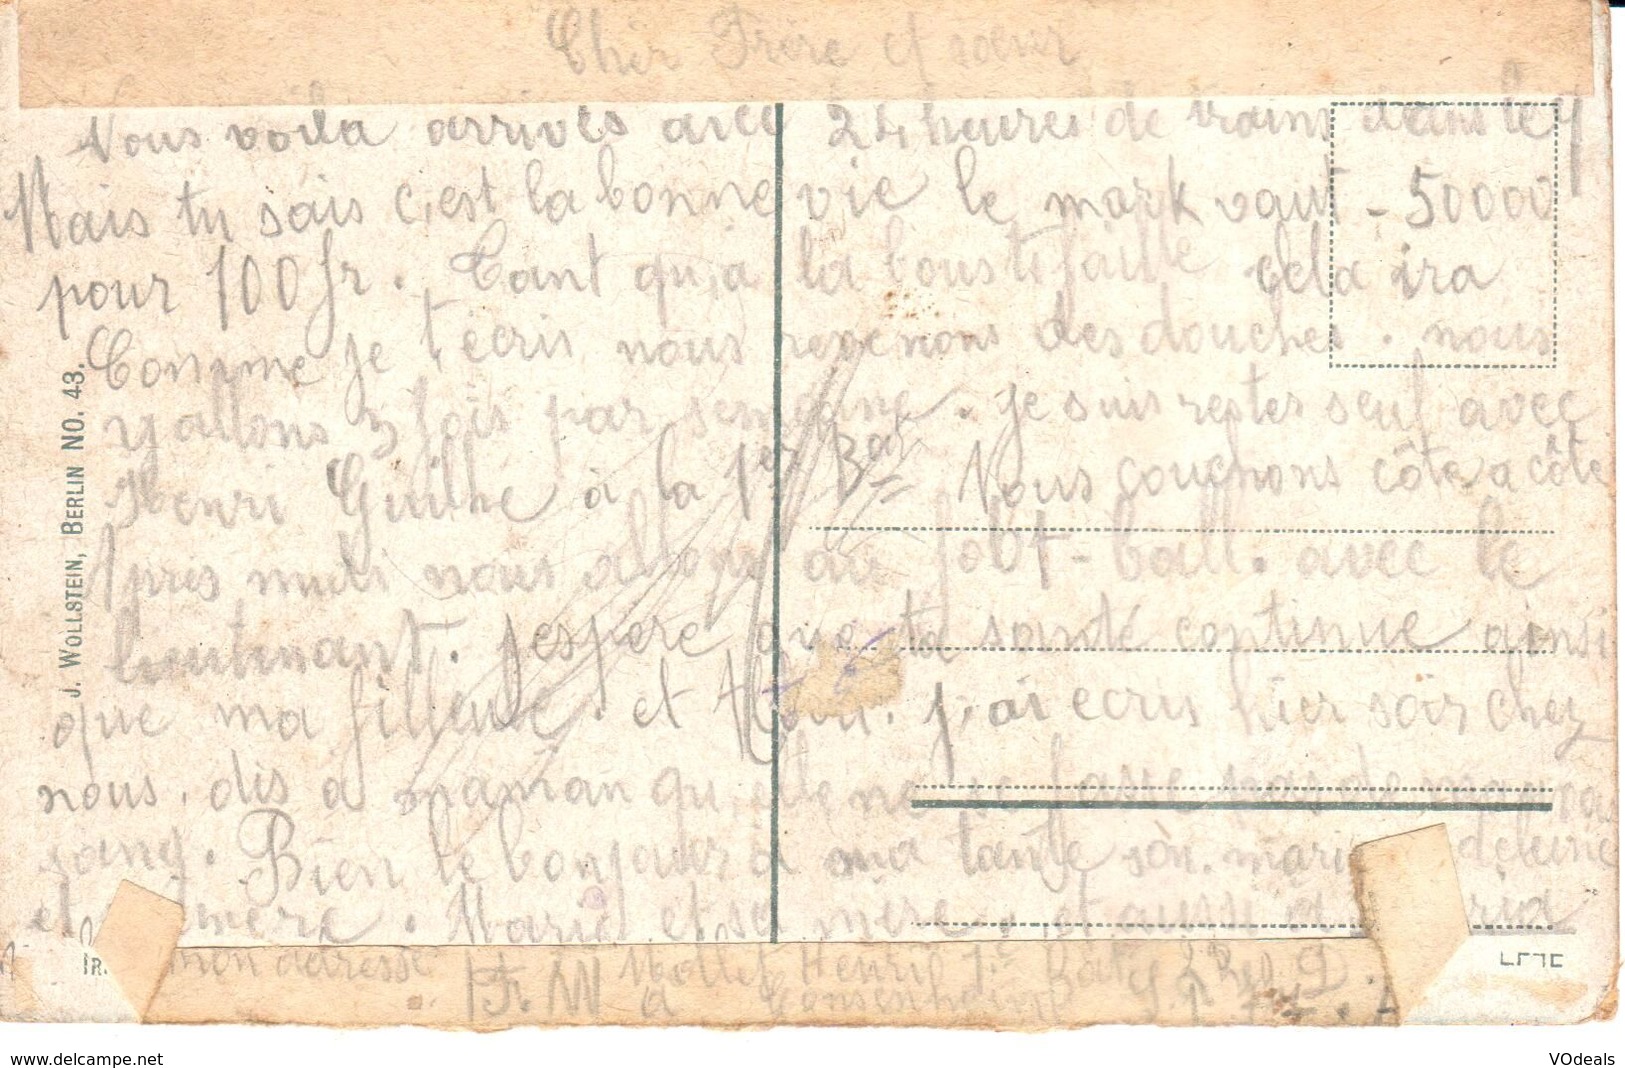 Cher Frère et sœur
Nous voila arrivés avec 24 heures de trains dans le
Mais tu sais c'est la bonne vie le mark vaut - 50000
pour 100 fr. Tant qu'a la boustifaille cela ira
Comme je t'écris nous revenons des douches. nous
y allons 3 fois par semaine. je suis restes seul avec
Henri à la 1er Bat= Nous couchons côte a côte
Apres midi nous allons au foot-ball. avec le
lieutenant. j'espere que ta santé continue ainsi
que ma filleule. et j'ai ecris hier soir chez
nous. dis a maman qu'elle ne se fasse pas de mauvais
sang. Bien le bonjour a ma tante son mari
et mère. Maria et sa mère. et aussi a
mon adresse Henri
F. M a
J. WOLLSTEIN, BERLIN NO. 43.
www.delcampe.net
VOdeals